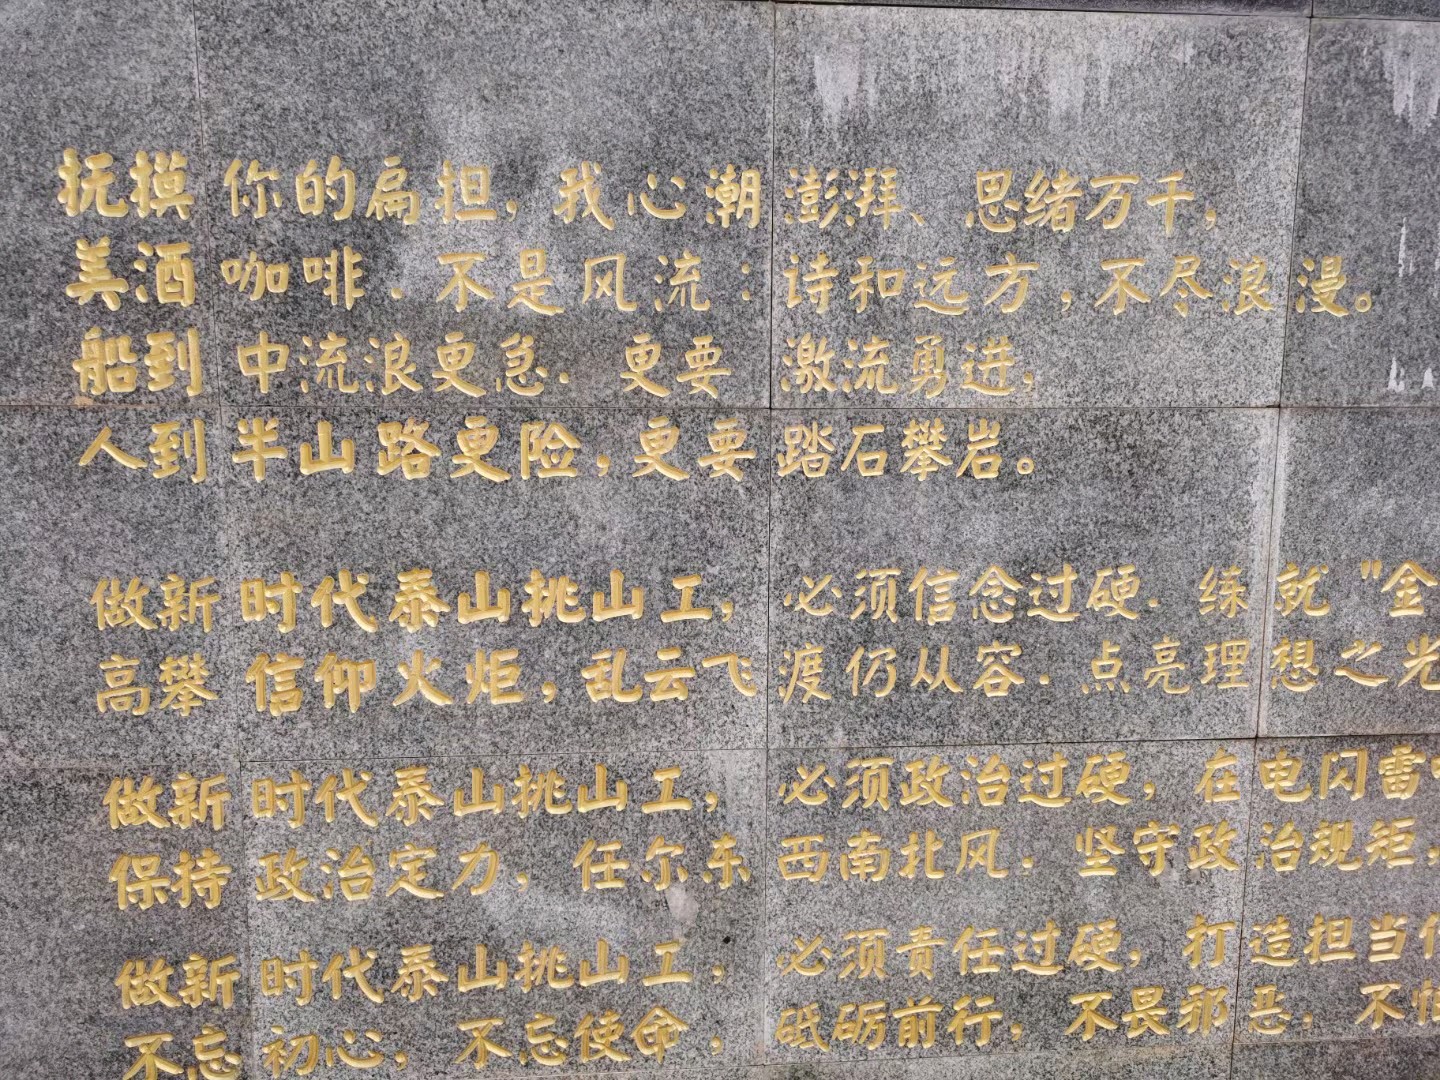 抚摸你的扁担，我心潮澎湃、思绪万千，
美酒咖啡，不是风流；诗和远方，不尽浪漫。
船到中流浪更急，更要激流勇进，
人到半山路更险，更要踏石攀岩。
做新时代泰山挑山工，必须信念过硬，练就“金
高攀信仰火炬，乱云飞渡仍从容，点亮理想之光
做新时代泰山挑山工，必须政治过硬，在电闪雷
保持政治定力，任尔东西南北风，坚守政治规矩，
做新时代泰山挑山工，必须责任过硬，打造担当
不忘初心，不忘使命，砥砺前行，不畏邪恶，不